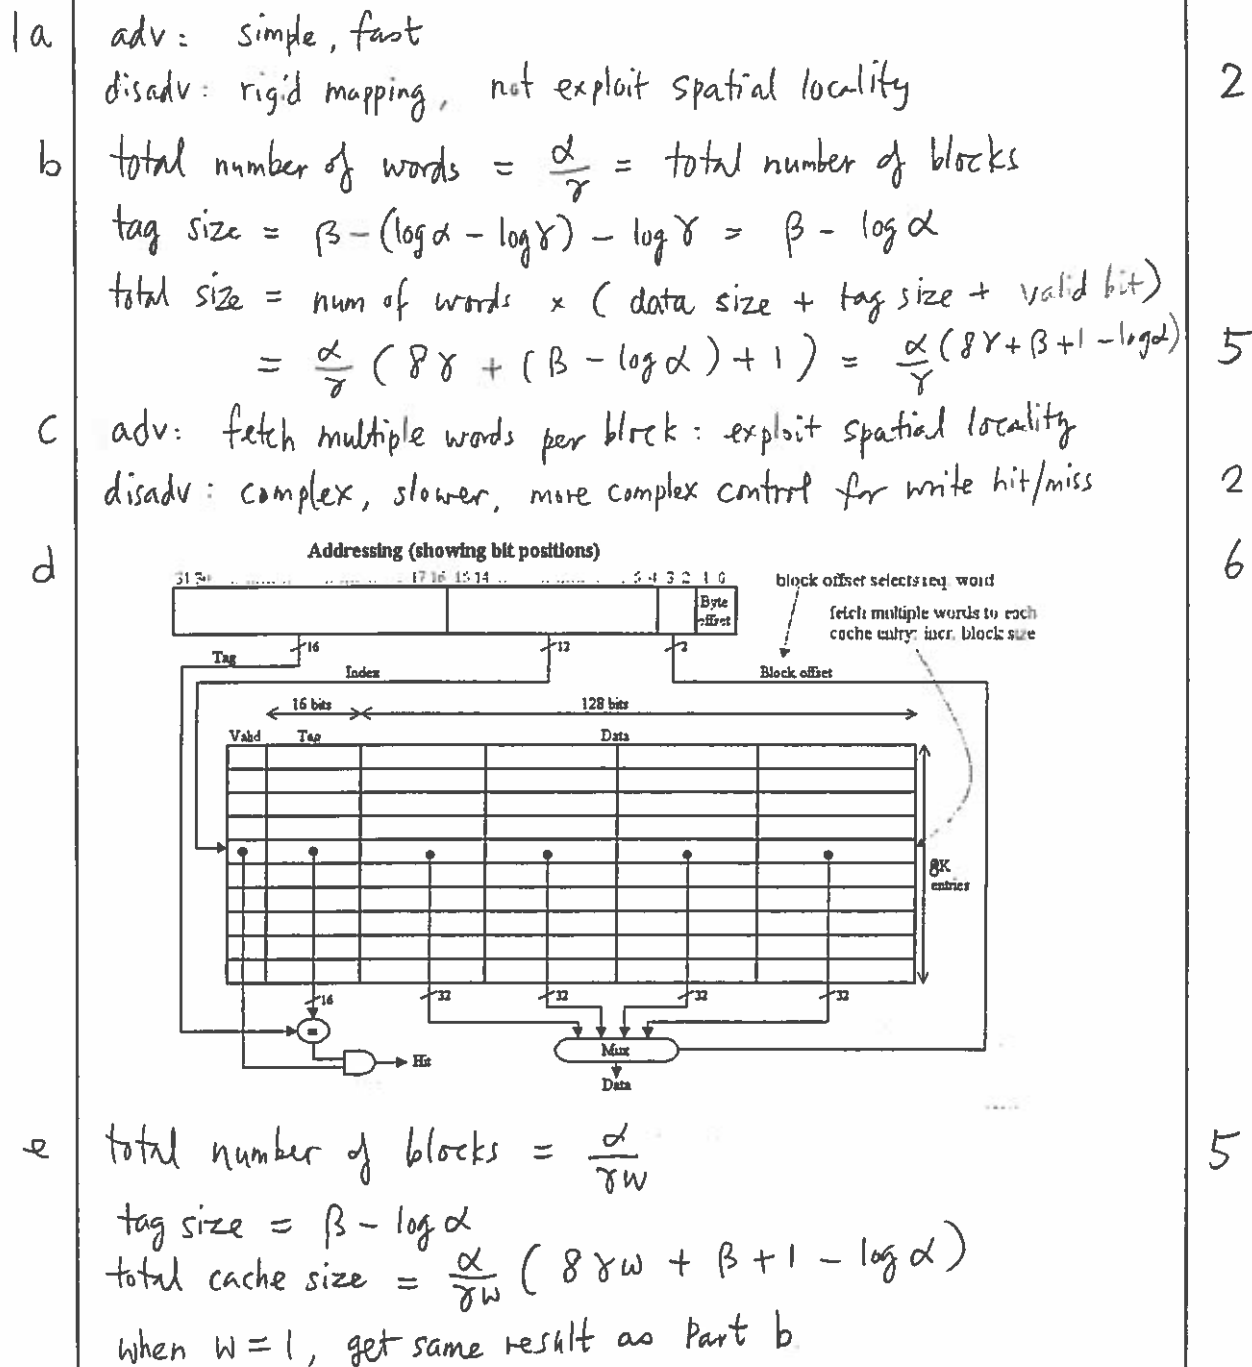 1a adv: simple, fast
disadv: rigid mapping, not exploit spatial locality 2
b total number of words = α/γ = total number of blocks
tag size = β - (log α - log γ) - log γ = β - log α
total size = num of words × ( data size + tag size + valid bit)
= α/γ ( 8γ + ( β - log α ) + 1 ) = α/γ (8γ + β + 1 - log α) 5
c adv: fetch multiple words per block: exploit spatial locality
disadv: complex, slower, more complex control for write hit/miss 2
d Addressing (showing bit positions) 6
31 30 17 16 15 14 5 4 3 2 1 0
block offset selects req. word
Byte offset
fetch multiple words to each
cache entry: incr. block size
16 12 2
Tag Index Block offset
16 bits 128 bits
Valid Tag Data
8K
entries
16 32 32 32 32
=
Mux
Hit
Data
e total number of blocks = α/γw 5
tag size = β - log α
total cache size = α/γw ( 8γw + β + 1 - log α )
when w = 1, get same result as Part b